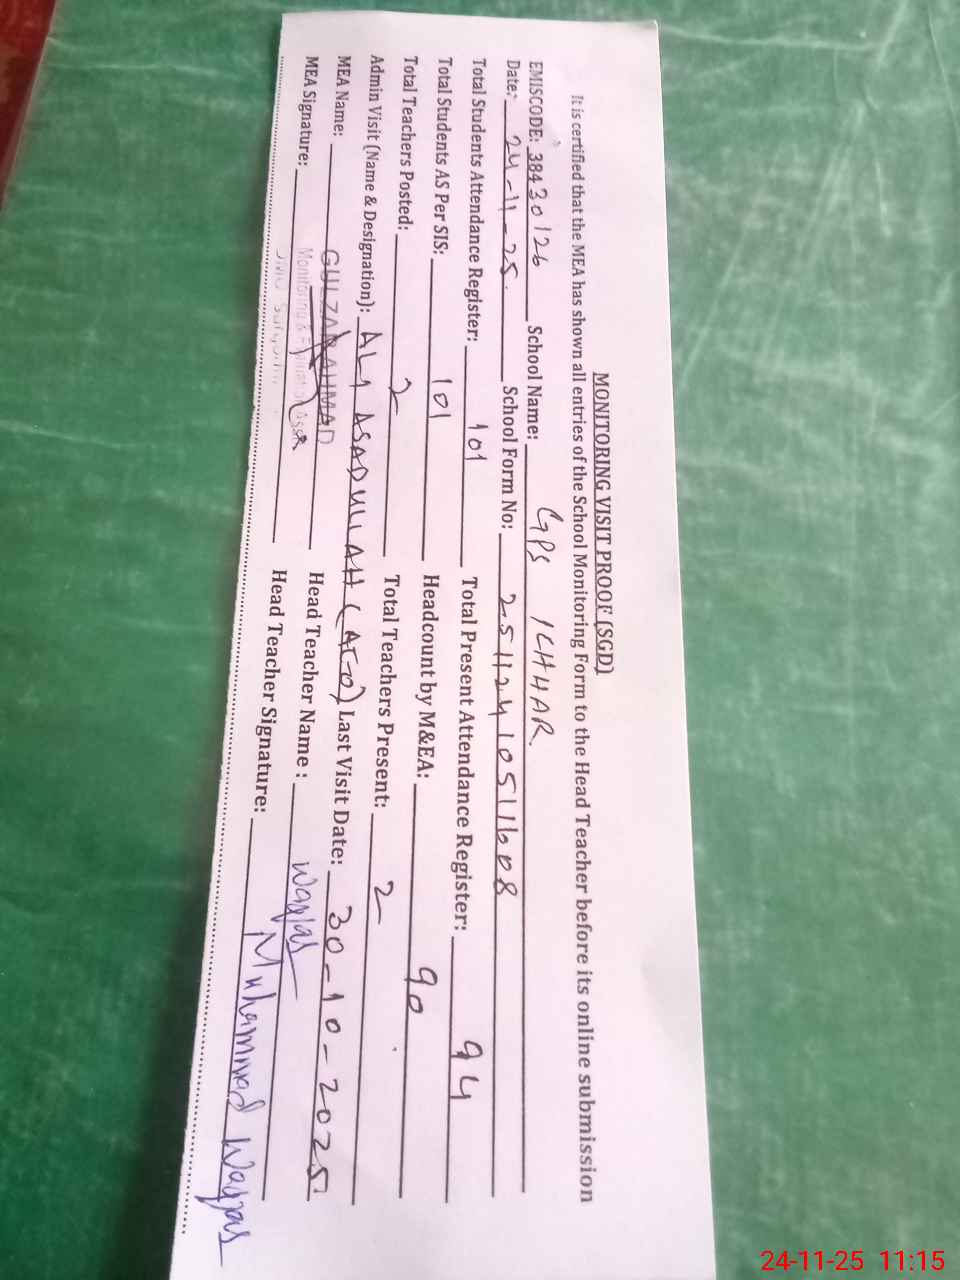 MONITORING VISIT PROOF (SGD)
It is certified that the MEA has shown all entries of the School Monitoring Form to the Head Teacher before its online submission
EMISCODE: 38430126 School Name: GPS ICHHAR
Date: 24-11-25. School Form No: 251124105111608
Total Students Attendance Register: 101 Total Present Attendance Register: 94
Total Students AS Per SIS: 101 Headcount by M&EA: 90
Total Teachers Posted: 2 Total Teachers Present: 2
Admin Visit (Name & Designation): ALI ASADULLAH (AEO) Last Visit Date: 30-10-2025
MEA Name: GULZAR AHMAD Head Teacher Name: Waqas
MEA Signature: Monitoring & Head Teacher Signature: Muhammad Waqas
24-11-25 11:15